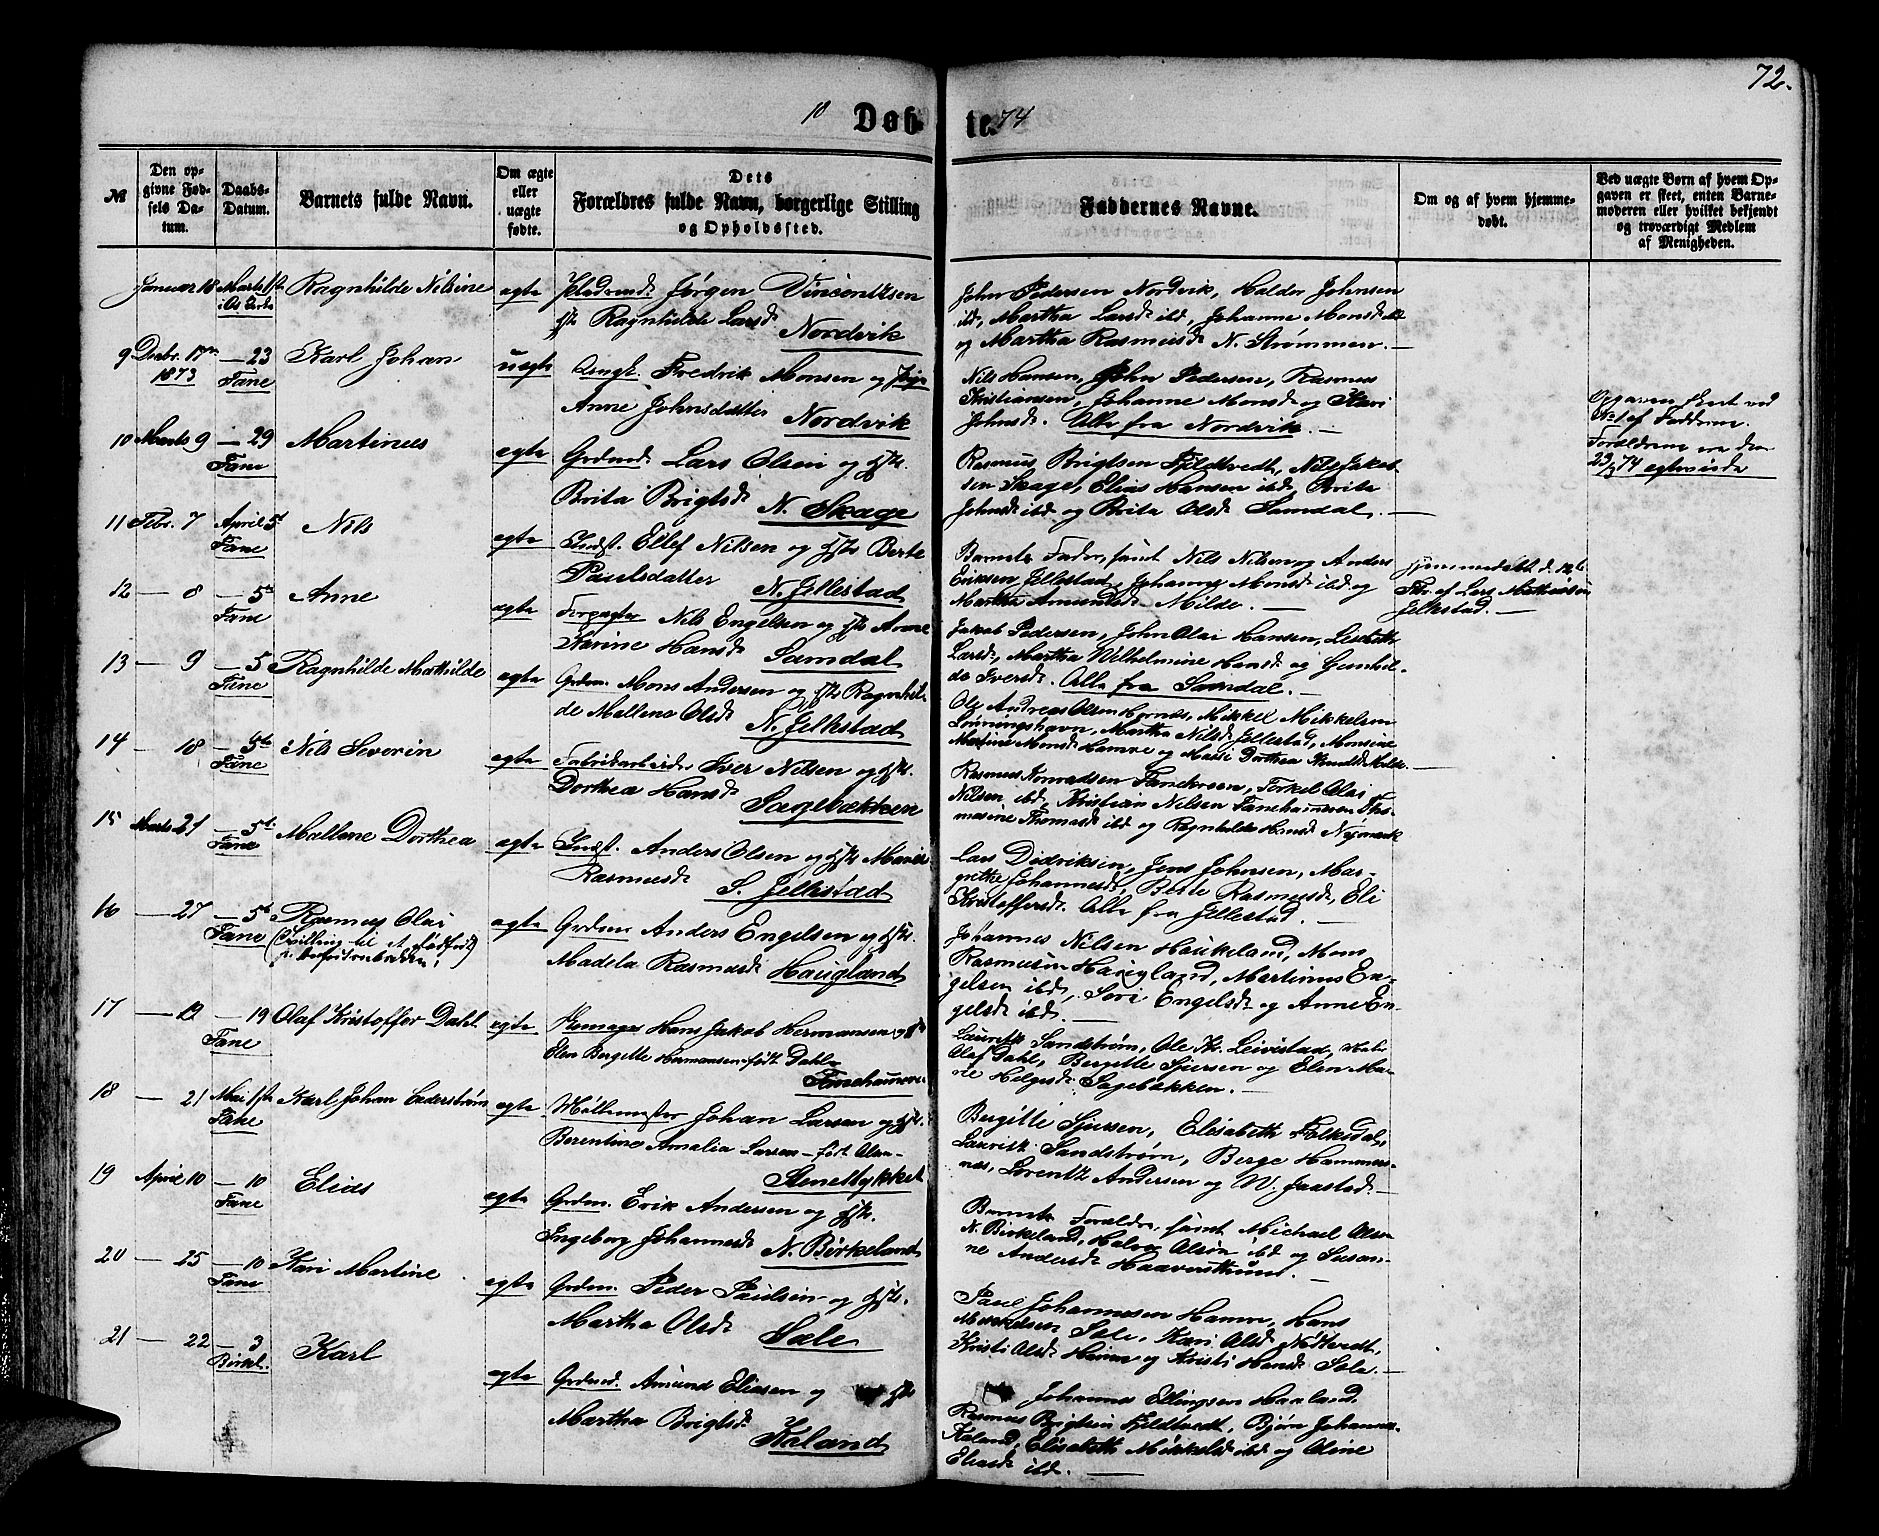 72.
18 Døb-
te. 74
№
Den op-
givne Fød-
sels Da-
tum.
Daabs-
Datum.
Barnets fulde Navn.
Om ægte
eller
uægte
fødte.
Dets
Forældres fulde Navn, borgerlige Stilling
og Opholdssted.
Faddernes Navne.
Om og af hvem hjemme-
døbt.
Ved uægte Børn af hvem Op-
gaven er skeet, enten Barne-
moderen eller hvilket bekjendt
og troværdigt Medlem
af Menigheden.
Januar 18 Marts 1ste
Ragnhilde Nilsine
egte
Jørgen Vincentzen
Ragnhilde Larsd.
Nordvik
John Pedersen Nordvik, Halder Johnsen
ibd, Martha Larsd. ibd, Johanne Monsd. ibd
og Martha Rasmusd. N. Strømmen. —
9 Decbr. 17de
1873
— 23
Fane
Karl Johan
uegte
Ungk. Fredrik Monsen og Pige
Anne Johnsdatter
Nordvik
Nils Hansen, John Pedersen, Rasmus
Kristiansen, Johanne Monsd. og Kari
Johnsd. Alle fra Nordvik. —
Opgaven skeet ved
No 1 af Fadderne.
Forældrene ere den
29/3 74 egteviede
10 Marts 9
— 29
Fane
Martinus
egte
Grdmd. Lars Olsen og Hstr.
Brita Brigtsd.
N. Skage
Rasmus Brigtsen Fjeldtvedt, Nils Jakob-
sen Skage, Elias Hansen ibd, Brita
Johnsd. ibd og Brita Olsd. Samdal. —
11 Febr. 7
April 5t
Fane
Nils
egte
Indst. Ellef Nilsen og Hstr Berte
Paulsdatter
N. Jellestad
Barnets Fader, samt Nils Nilsen og Anders
Eriksen Jellestad, Johanne Monsd. ibd og
Martha Amundsd. Milde. —
Hjemmedøbt d. 12te
Fbr. af Lars Mathiasen
Jellestad. —
12 — 8
— 5t
Fane
Anne
egte
Forpagter Nils Engelsen og Hstr Anne
Karine Hansd.
Samdal
Jakob Pedersen, John Olai Hansen, Lisebeth
Larsd., Martha Wilhelmine Hansd. og Gunhil-
de Iversd. Alle fra Samdal. —
13 — 9
— 5
Fane
Ragnhilde Mathilde
egte
Grdm. Mons Andersen og Hstr Ragnhil-
de Mallena Olsd.
N. Jellestad
Ole Andreas Olsen Hornæs, Mikkel Mikkelsen
Lønningshavn, Martha Nilsd. Jellestad, Monsine
Martine Monsd. Hamre og Massi Dorthea Knudsd. Milde. —
14 — 18
— 5te
Fane
Nils Severin
egte
Fabrikarbeider Iver Nilsen og Hstr.
Dorthea Hansd.
Sagebækken
Rasmus Konradsen Fanekroen, Torkel Olai
Nilsen ibd, Kristian Nilsen Fanehammeren Tho-
masine Thomasd. ibd og Ragnhilde Hansd.
15 Marts 21
— 5t
Fane
Mallene Dorthea
egte
Indst. Anders Olsen og Hstr Marie
Rasmusd.
S. Jellestad
Lars Didriksen, Jens Johnsen, Mar-
grethe Johannesd., Berte Rasmusd., Eli
Kristoffersd. Alle fra Jellestad. —
16 — 27
— 5t
Fane
Rasmus Olai
(Tvilling til et dødfødt
egte
Grdm. Anders Engelsen og Hstr.
Madela Rasmusd. Haugland
Johannes Nilsen Haukeland, Mons
Rasmusen Haugland, Martinus En-
gelsen ibd, Siri Engelsd. og Anne En-
gelsd. ibd. —
17 — 19
— 19
Fane
Olaf Kristoffer Dahl
egte
Hans Jakob Hermansen og Hstr
Elen Bergette Hermansen født Dahl
Fanehammeren
Lauritz Sandstrøm, Ole Kr. Leivestad,
Olaf Dahl, Bergitte Sjursen og Elen Ma-
rie Helgesd. Sagebækken. —
18 — 21
Mai 1ste
Fane
Karl Johan Cederstrøm
egte
Møllemester Johan Larsen og Hstr.
Berentine Amalia Larsen født Olsen
Stenestykket
Bergitte Sjursen, Elisabeth Folkedal,
Lauritz Sandstrøm, Berge Hammers-
næs, Lorentz Andersen og W. Jaastad. —
19 April 10
— 10
Fane
Elias
egte
Grdm. Erik Andersen og Hstr.
Ingeborg Johannesd. N. Birkeland
Barnets Forældre, samt Michael Olsen
N. Birkeland, Halvor Olsen ibd og Susan-
ne Andersd. Haavorstuun. —
20 — 25
— 10
Fane
Kari Martine
egte
Grdm. Peder Paulsen og Hstr.
Martha Olsd.
Sæle
Paul Johannesen Hamre, Hans
Mikkelsen Sæle, Kari Olsd. Nedtvedt,
Kristi Olsd. Hamre og Kristi Hansd. Sæle. —
21 — 22
— 3
Birkel.
Karl
egte
Grdmd. Amund Eliasen og Hstr
Martha Brigtsd.
Kaland
Johannes Ellingsen Haaland,
Rasmus Brigtsen Fjeldtvedt, Bjørn Johannes.
Kaland, Elisabeth Mikkelsd. ibd og Oline
Eliasd. ibd. —